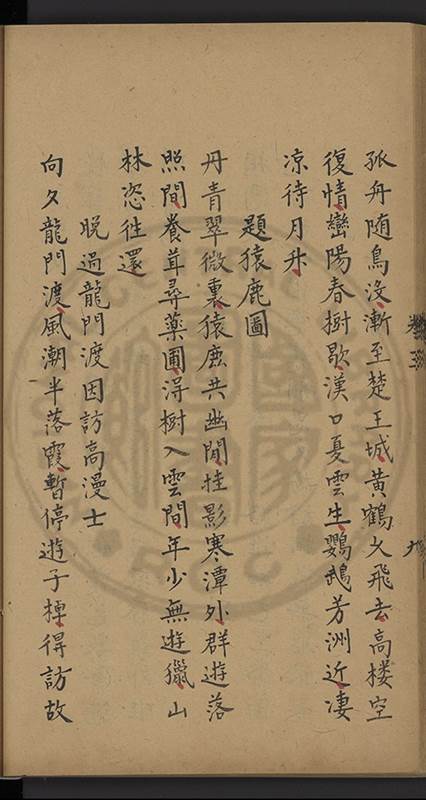 孤舟随鳥没漸至楚王城黄鶴久飛去高楼空
復情巒陽春樹歇漢口夏雲生鸚鵡芳洲近凄
凉待月升
題猿鹿圖
丹青翠微裏猿鹿共幽閒挂影寒潭外群遊落
照間養茸尋藥圃淂樹入雲間年少無遊獵山
林恣徃還
晚過龍門渡因訪高漫士
向夕龍門渡風潮半落霞暫停遊子棹得訪故